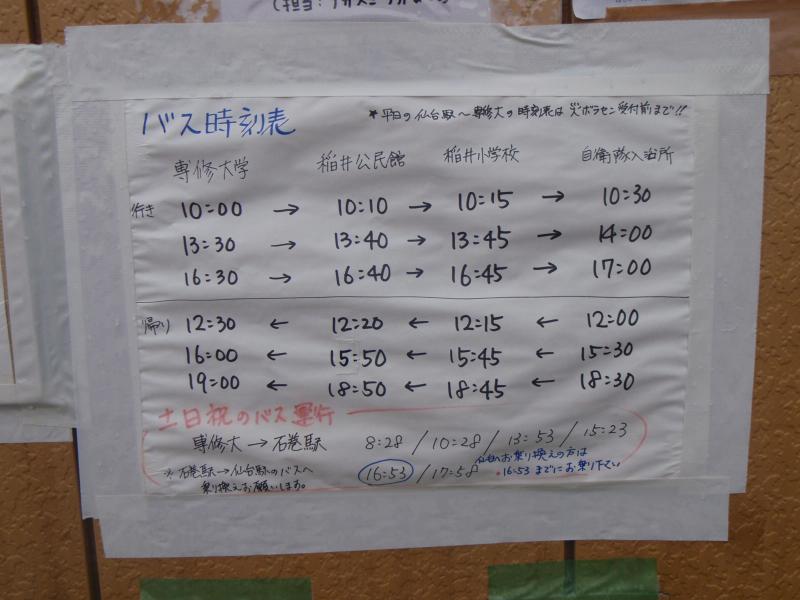 バス時刻表
*平日の仙台駅～専修大の時刻表は災ボラセン受付前まで!!
専修大学 稲井公民館 稲井小学校 自衛隊入浴所
行き 10:00 → 10:10 → 10:15 → 10:30
13:30 → 13:40 → 13:45 → 14:00
16:30 → 16:40 → 16:45 → 17:00
帰り 12:30 ← 12:20 ← 12:15 ← 12:00
16:00 ← 15:50 ← 15:45 ← 15:30
19:00 ← 18:50 ← 18:45 ← 18:30
土日祝のバス運行
専修大→石巻駅 8:28 / 10:28 / 13:53 / 15:23
16:53 / 17:58
※石巻駅→仙台駅のバスへ
乗り換えお願いします。
仙台へお乗り換えの方は
・16:53までにお乗り下さい